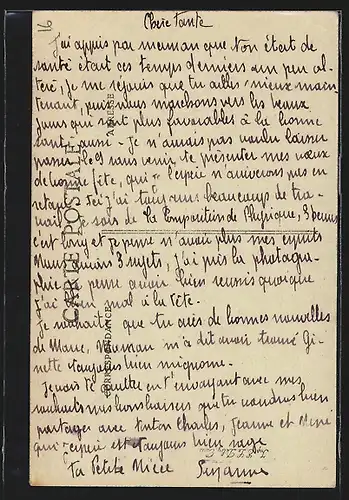 16
Chère tante
J'ai appris par maman que ton état de
santé était ces temps derniers un peu al-
téré, je me réjouis que tu ailles mieux main-
tenant, puis nous marchons vers les beaux
jours qui sont plus favorables à la bonne
santé aussi. Je n'aurais pas voulu laisser
passer le 9 sans venir te présenter mes vœux
de bonne fête, qui j'espère n'arriveront pas en
retard. Ici j'ai toujours beaucoup de tra-
vail, je sors de la Composition de Physique, 3 heures
c'est long et je pense n'avoir plus mes esprits
Nous avions 3 sujets, j'ai pris la photogra-
phie, je pense avoir bien réussi quoique
j'ai mal à la tête.
Je souhaite que tu aies de bonnes nouvelles
de Marie, Maman m'a dit avoir trouvé Gi-
nette toujours bien mignonne.
Je vais te quitter en t'envoyant avec mes
souhaits mes bons baisers que tu voudras bien
partager avec tonton Charles, Jeanne et
qui j'espère est toujours bien sage
Ta Petite Nièce Suzanne
CARTE POSTALE
CORRESPONDANCE
ADRESSE